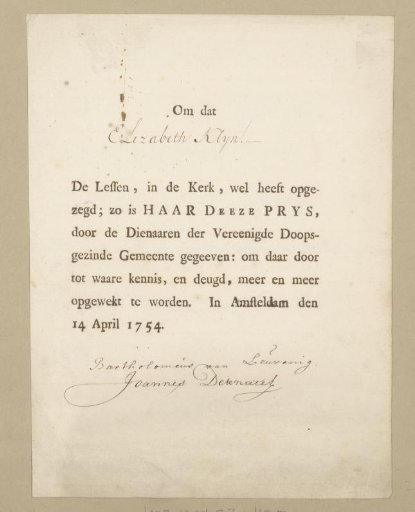 Om dat
Elizabeth Klyn.
De Leſſen, in de Kerk, wel heeft opge-
zegd; zo is HAAR DEEZE PRYS,
door de Dienaaren der Vereenigde Doops-
gezinde Gemeente gegeeven: om daar door
tot waare kennis, en deugd, meer en meer
opgewekt te worden. In Amſteldam den
14 April 1754.
Bartholomeus van Leuvenig.
Joannes Deknatel